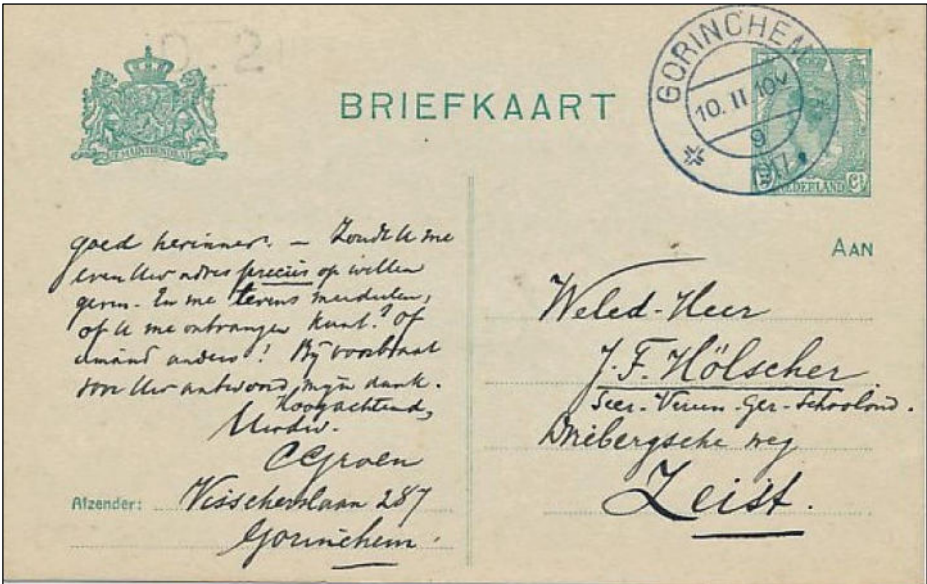 BRIEFKAART
GORINCHEM
10. II 10V
9
NEDERLAND
goed herinner. – Zoudt U me
even Uw adres precies op willen
geven. En me tevens meedeelen,
of U me ontvangen kunt? of
iemand anders! Bij voorbaat
voor Uw antwoord, mijn dank.
Hoogachtend,
Uwdw.
CGroen
Afzender: Visscherslaan 287
Gorinchem.
AAN
Weled-Heer
J.F. Hölscher
Secr. Veren. Ger. Schoolond.
Driebergsche weg
Zeist.